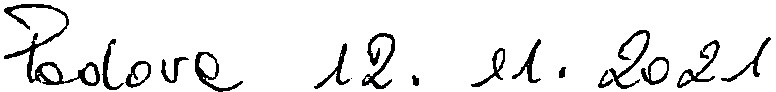 Padova 12. 11. 2021